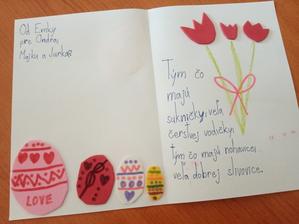 Od Emky
pre Ondřej
Majku a Janka
Tým čo
majú
sukničky, veľa
čerstvej vodičky,
tým čo majú nohavice...
veľa dobrej slivovice.
LOVE